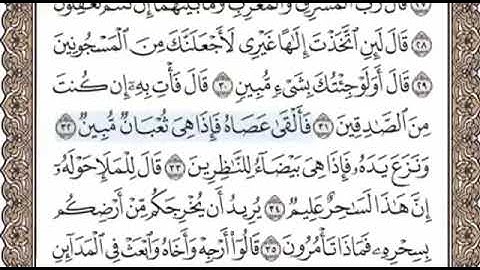 ٢٧ قَالَ رَبُّ ٱلْمَشْرِقِ وَٱلْمَغْرِبِ وَمَا بَيْنَهُمَآ إِن كُنتُمْ تَعْقِلُونَ
٢٨ قَالَ لَئِنِ ٱتَّخَذْتَ إِلَٰهًا غَيْرِى لَأَجْعَلَنَّكَ مِنَ ٱلْمَسْجُونِينَ
٢٩ قَالَ أَوَلَوْ جِئْتُكَ بِشَىْءٍ مُّبِينٍ ٣٠ قَالَ فَأْتِ بِهِۦٓ إِن كُنتَ
مِنَ ٱلصَّٰدِقِينَ ٣١ فَأَلْقَىٰ عَصَاهُ فَإِذَا هِىَ ثُعْبَانٌ مُّبِينٌ ٣٢
وَنَزَعَ يَدَهُۥ فَإِذَا هِىَ بَيْضَآءُ لِلنَّٰظِرِينَ ٣٣ قَالَ لِلْمَلَإِ حَوْلَهُۥٓ
إِنَّ هَٰذَا لَسَٰحِرٌ عَلِيمٌ ٣٤ يُرِيدُ أَن يُخْرِجَكُم مِّنْ أَرْضِكُم
بِسِحْرِهِۦ فَمَاذَا تَأْمُرُونَ ٣٥ قَالُوٓا۟ أَرْجِهْ وَأَخَاهُ وَٱبْعَثْ فِى ٱلْمَدَآئِنِ